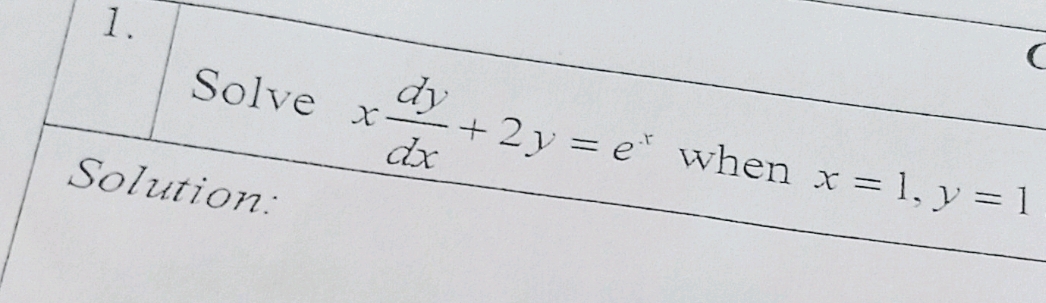 1.
Solve x dy/dx + 2y = eˣ when x = 1, y = 1
Solution: